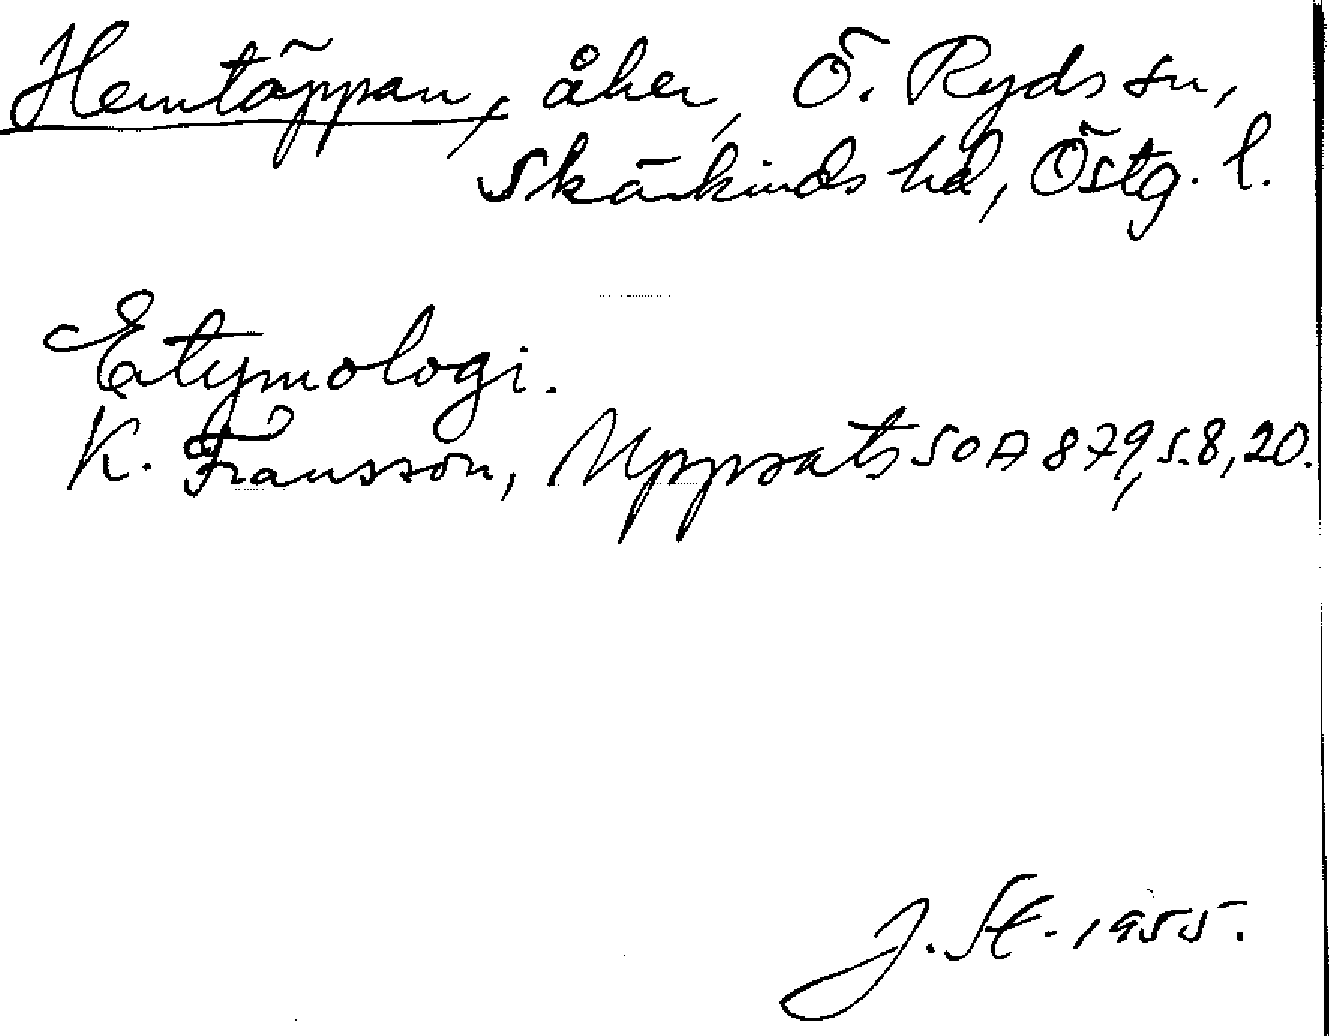 Hemtäppan, åker, Ö. Ryds sn,
Skärkinds hd, Östg. l.
Etymologi.
K. Fransson, Uppsats SOA 879, s. 8, 20.
J. St. 1955.